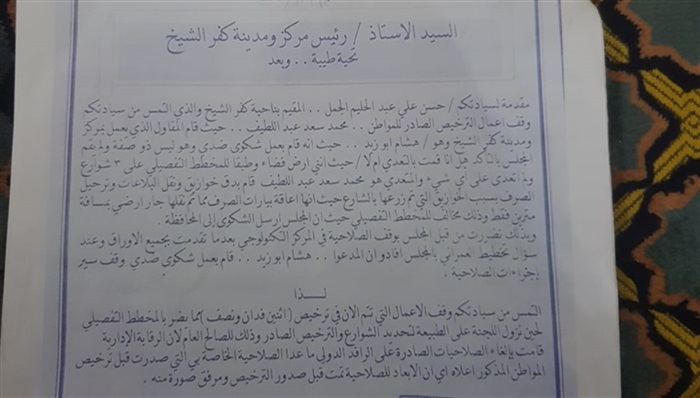 السيد الاستاذ / رئيس مركز ومدينة كفر الشيخ
تحية طيبة .. وبعد
مقدمة لسيادتكم / حسن علي عبد الحليم الجمل .. المقيم بناحية كفر الشيخ والذي التمس من سيادتكم
وقف اعمال الترخيص الصادر للمواطن .. محمد سعد عبد اللطيف .. حيث قام المقاول الذي يعمل بمركز
ومدينة كفر الشيخ وهو / هشام ابو زيد .. حيث انه قام بعمل شكوى ضدي وهو ليس ذو صفة ولم يقم
المجلس بالتأكد هل انا قمت بالتعدي ام لا / حيث انني ارض فضاء وطبقا للمخطط التفصيلي على ٣ شوارع
ولم اتعدى على أي شيء والمتعدي هو محمد سعد عبد اللطيف قام بدق خوازيق ونقل البلاعات وترحيل
الصرف بسبب الخوازيق التي تم زرعها بالشارع حيث انها اعاقة بيارات الصرف مما تم نقلها جار ارضي بمسافة
مترين فقط وذلك مخالف للمخطط التفصيلي حيث ان المجلس ارسل الشكوى إلى المحافظة .
وبذلك تضررت من قبل المجلس بوقف الصلاحية في المركز التكنولوجي بعدما تقدمت بجميع الاوراق وعند
سؤال تخطيط العمراني بالمجلس افادو ان المدعوا .. هشام ابو زيد .. قام بعمل شكوى ضدي وقف سير
إجراءات الصلاحية .
لــــذا
التمس من سيادتكم وقف الاعمال التي تتم الان في ترخيص (اثنين فدان ونصف) مما يضر بالمخطط التفصيلي
لحين نزول اللجنة على الطبيعة لتحديد الشوارع والترخيص الصادر وذلك للصالح العام لان الرقابة الإدارية
قامت بإلغاء الصلاحيات الصادرة على الرافد الدولي ما عدا الصلاحية الخاصة بي التي صدرت قبل ترخيص
المواطن المذكور اعلاه اي ان الابعاد للصلاحية تمت قبل صدور الترخيص ومرفق صورة منه .